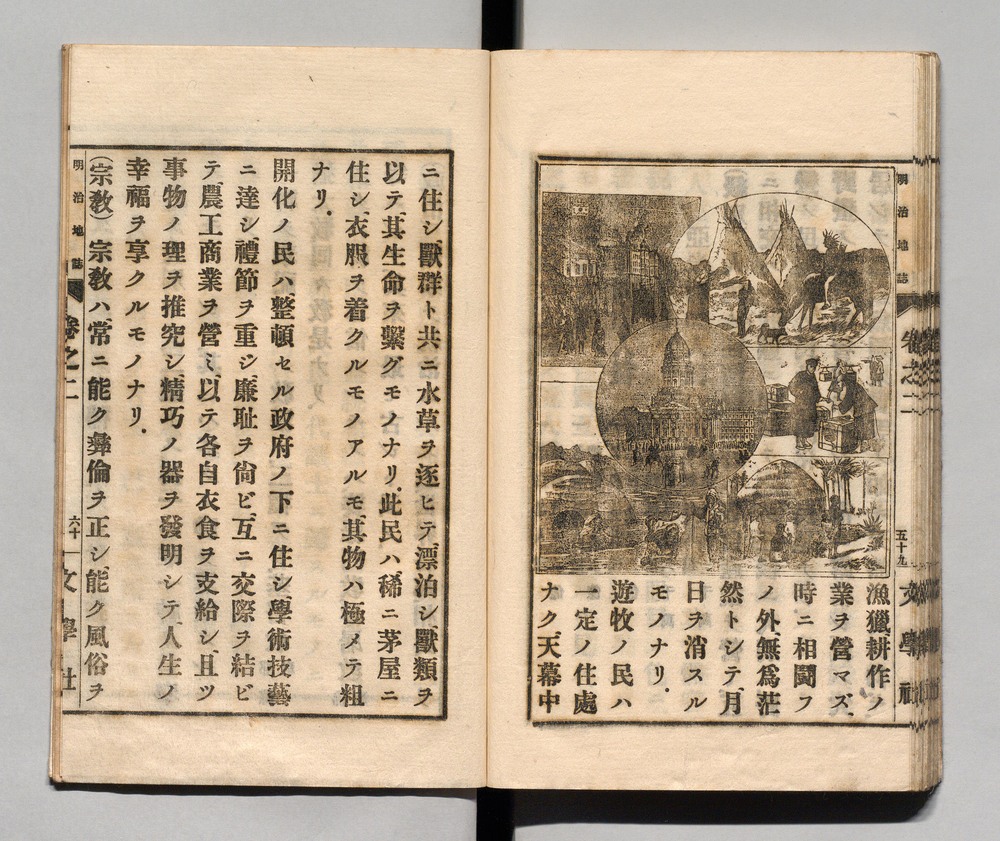 明治地誌
卷之二
五十九
文學社
漁獵耕作ノ
業ヲ營マズ、
時ニ相鬪フ
ノ外、無爲茫
然トシテ、月
日ヲ消スル
モノナリ.
遊牧ノ民ハ
一定ノ住處
ナク、天幕中
ニ住シ、獸群ト共ニ水草ヲ逐ヒテ、漂泊シ、獸類ヲ
以テ、其生命ヲ繫グモノナリ.此民ハ稀ニ茅屋ニ
住シ、衣服ヲ着クルモノアルモ、其物ハ極メテ粗
ナリ.
開化ノ民ハ整頓セル政府ノ下ニ住シ、學術技藝
ニ達シ、禮節ヲ重ジ、廉耻ヲ尙ビ、互ニ交際ヲ結ビ
テ、農工商業ヲ營ミ、以テ各自衣食ヲ支給シ、且ツ
事物ノ理ヲ推究シ、精巧ノ器ヲ發明シテ、人生ノ
幸福ヲ享クルモノナリ.
(宗敎) 宗敎ハ常ニ能ク彜倫ヲ正シ、能ク風俗ヲ
明治地誌
卷之二
六十
文學社